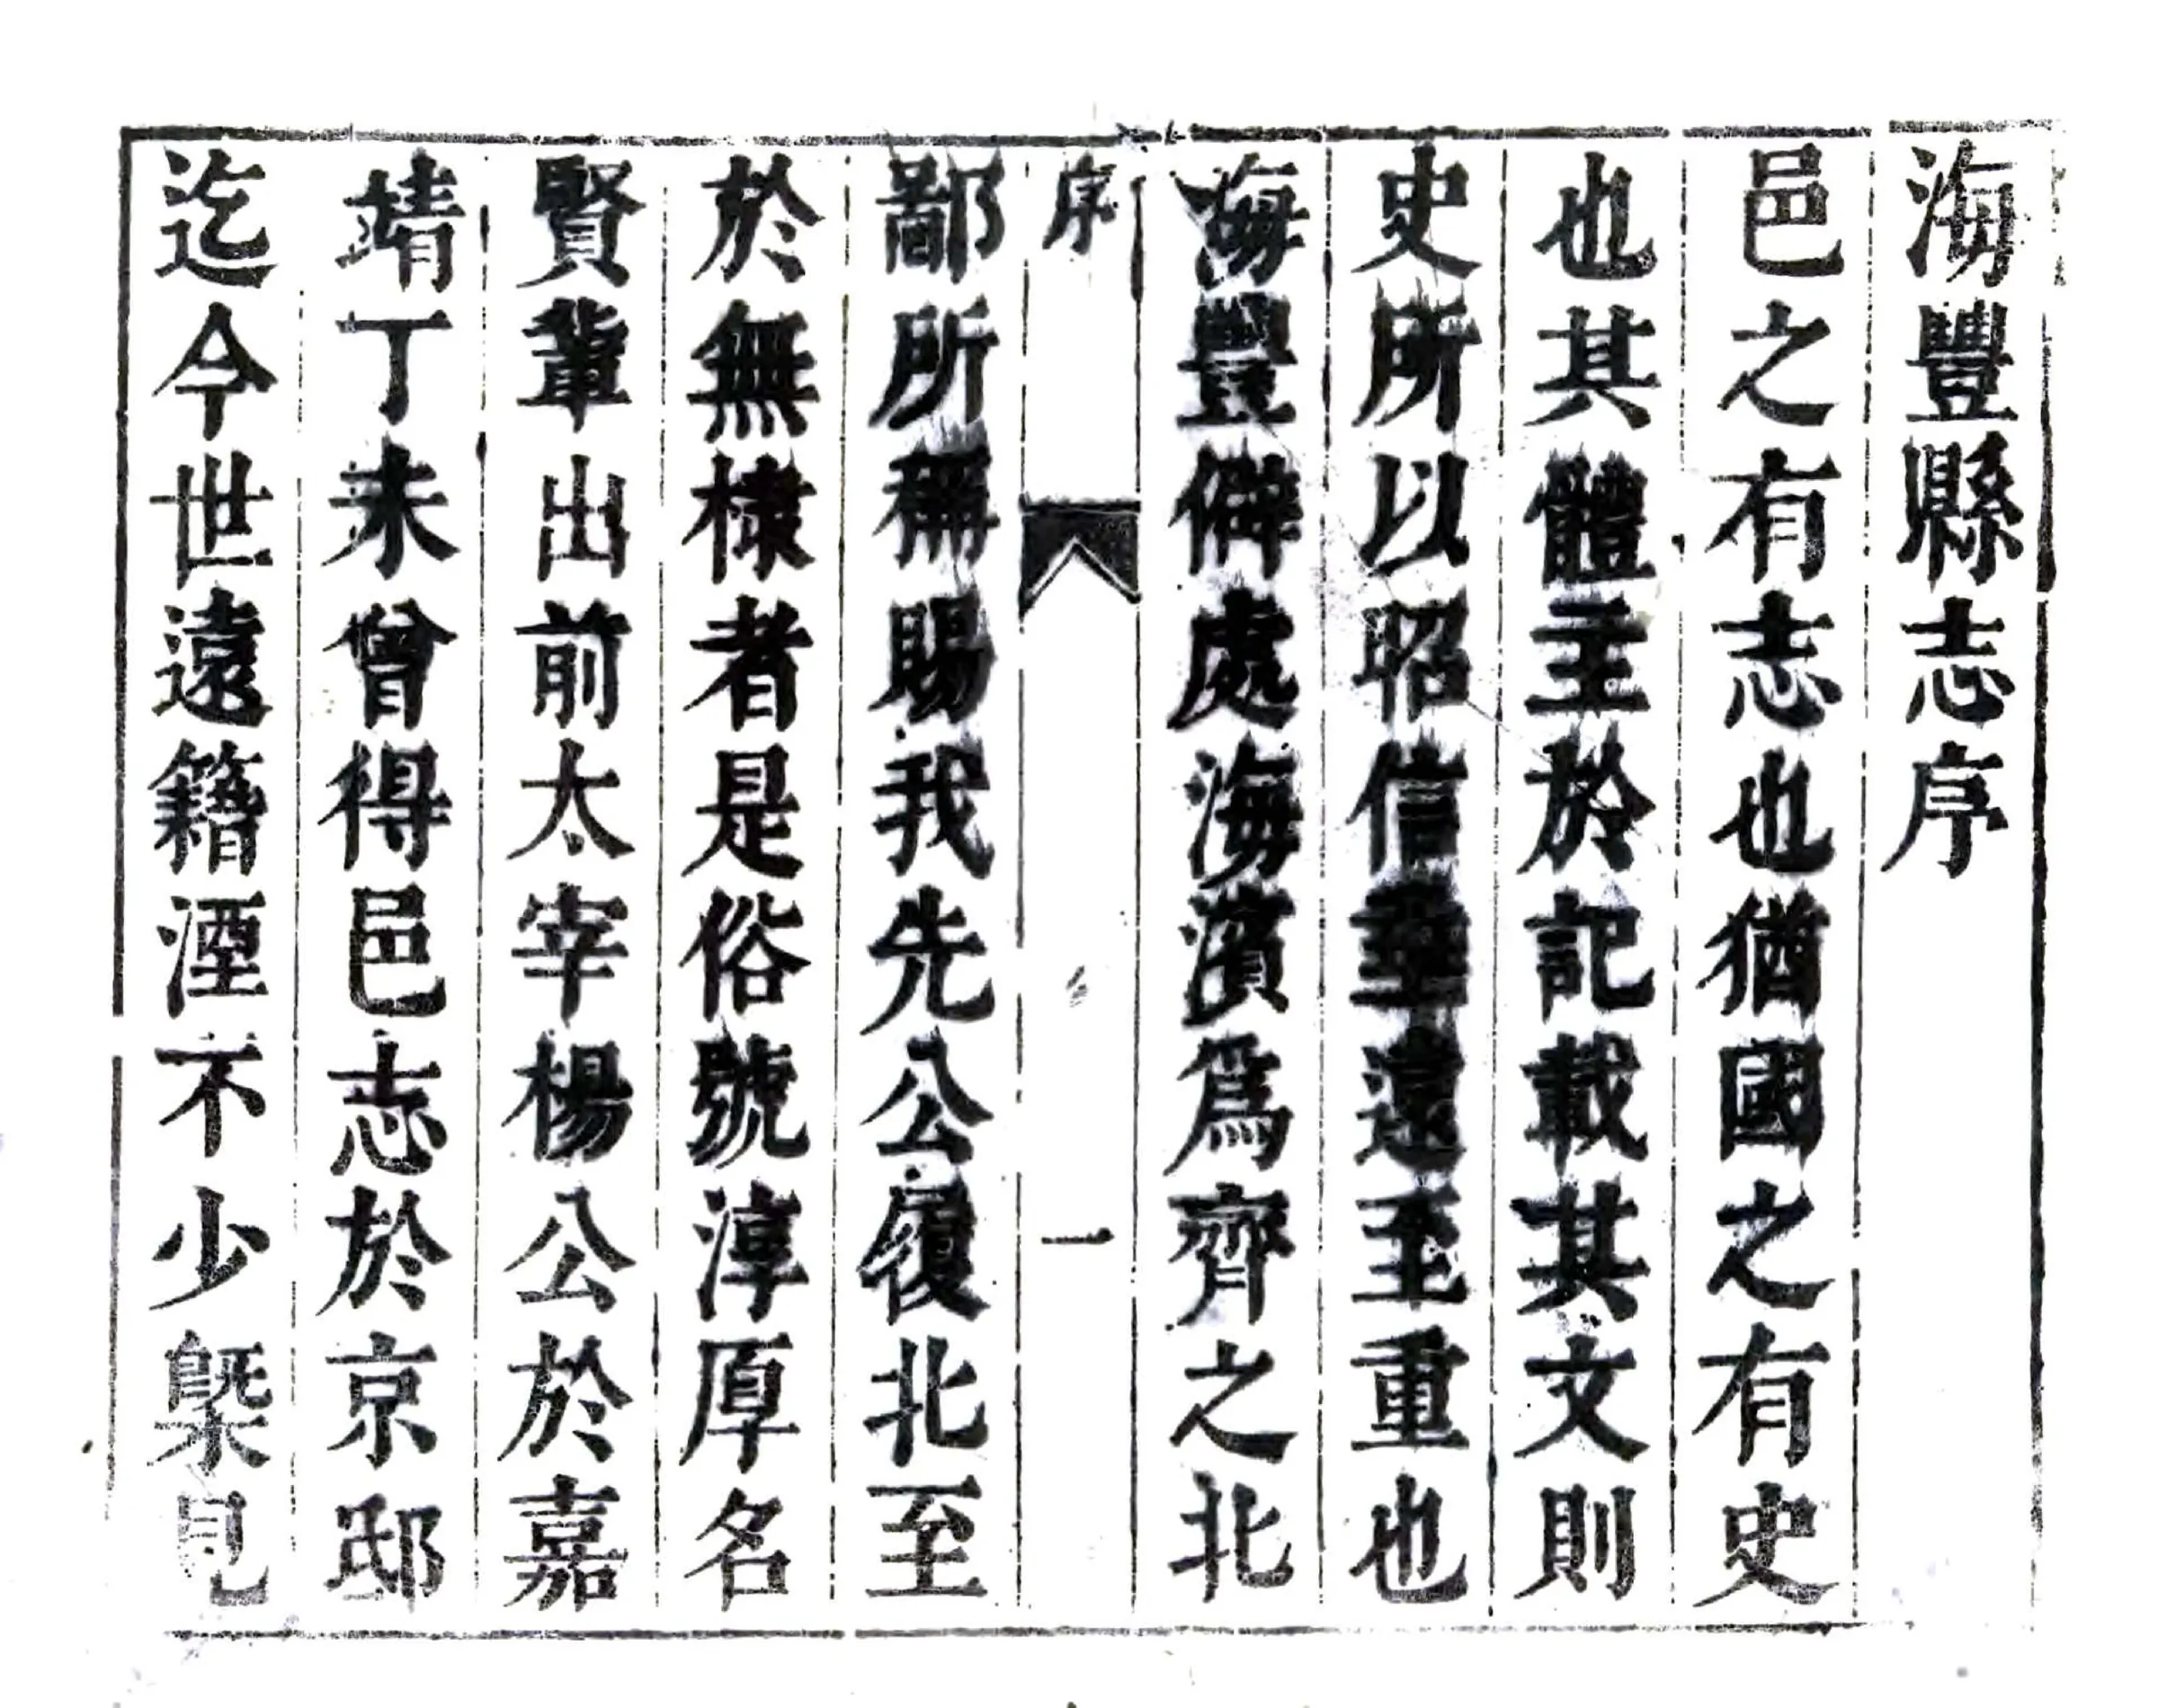 海豐縣志序
邑之有志也猶國之有史
也其體主於記載其文則
史所以昭信垂遠至重也
海豐僻處海濱爲齊之北
序 一
鄙所稱賜我先公履北至
於無棣者是俗號淳厚名
賢輩出前太宰楊公於嘉
靖丁未曾得邑志於京邸
迄今世遠籍湮不少槩見